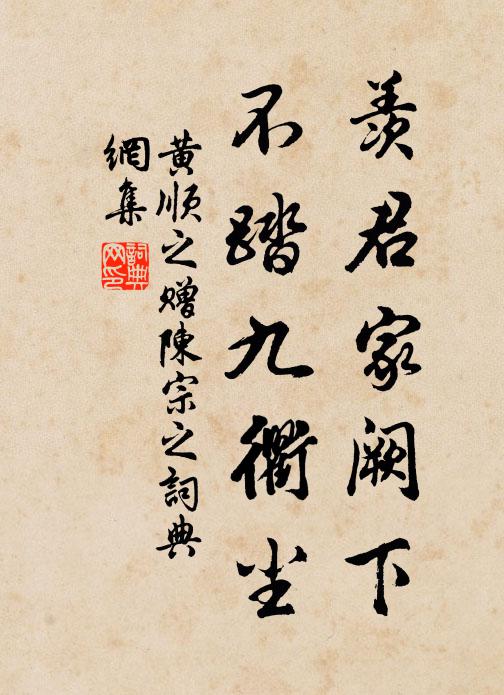 羨君家阙下
不踏九衢尘
黄顺之赠陳宗之詞典
網集
詞典网印